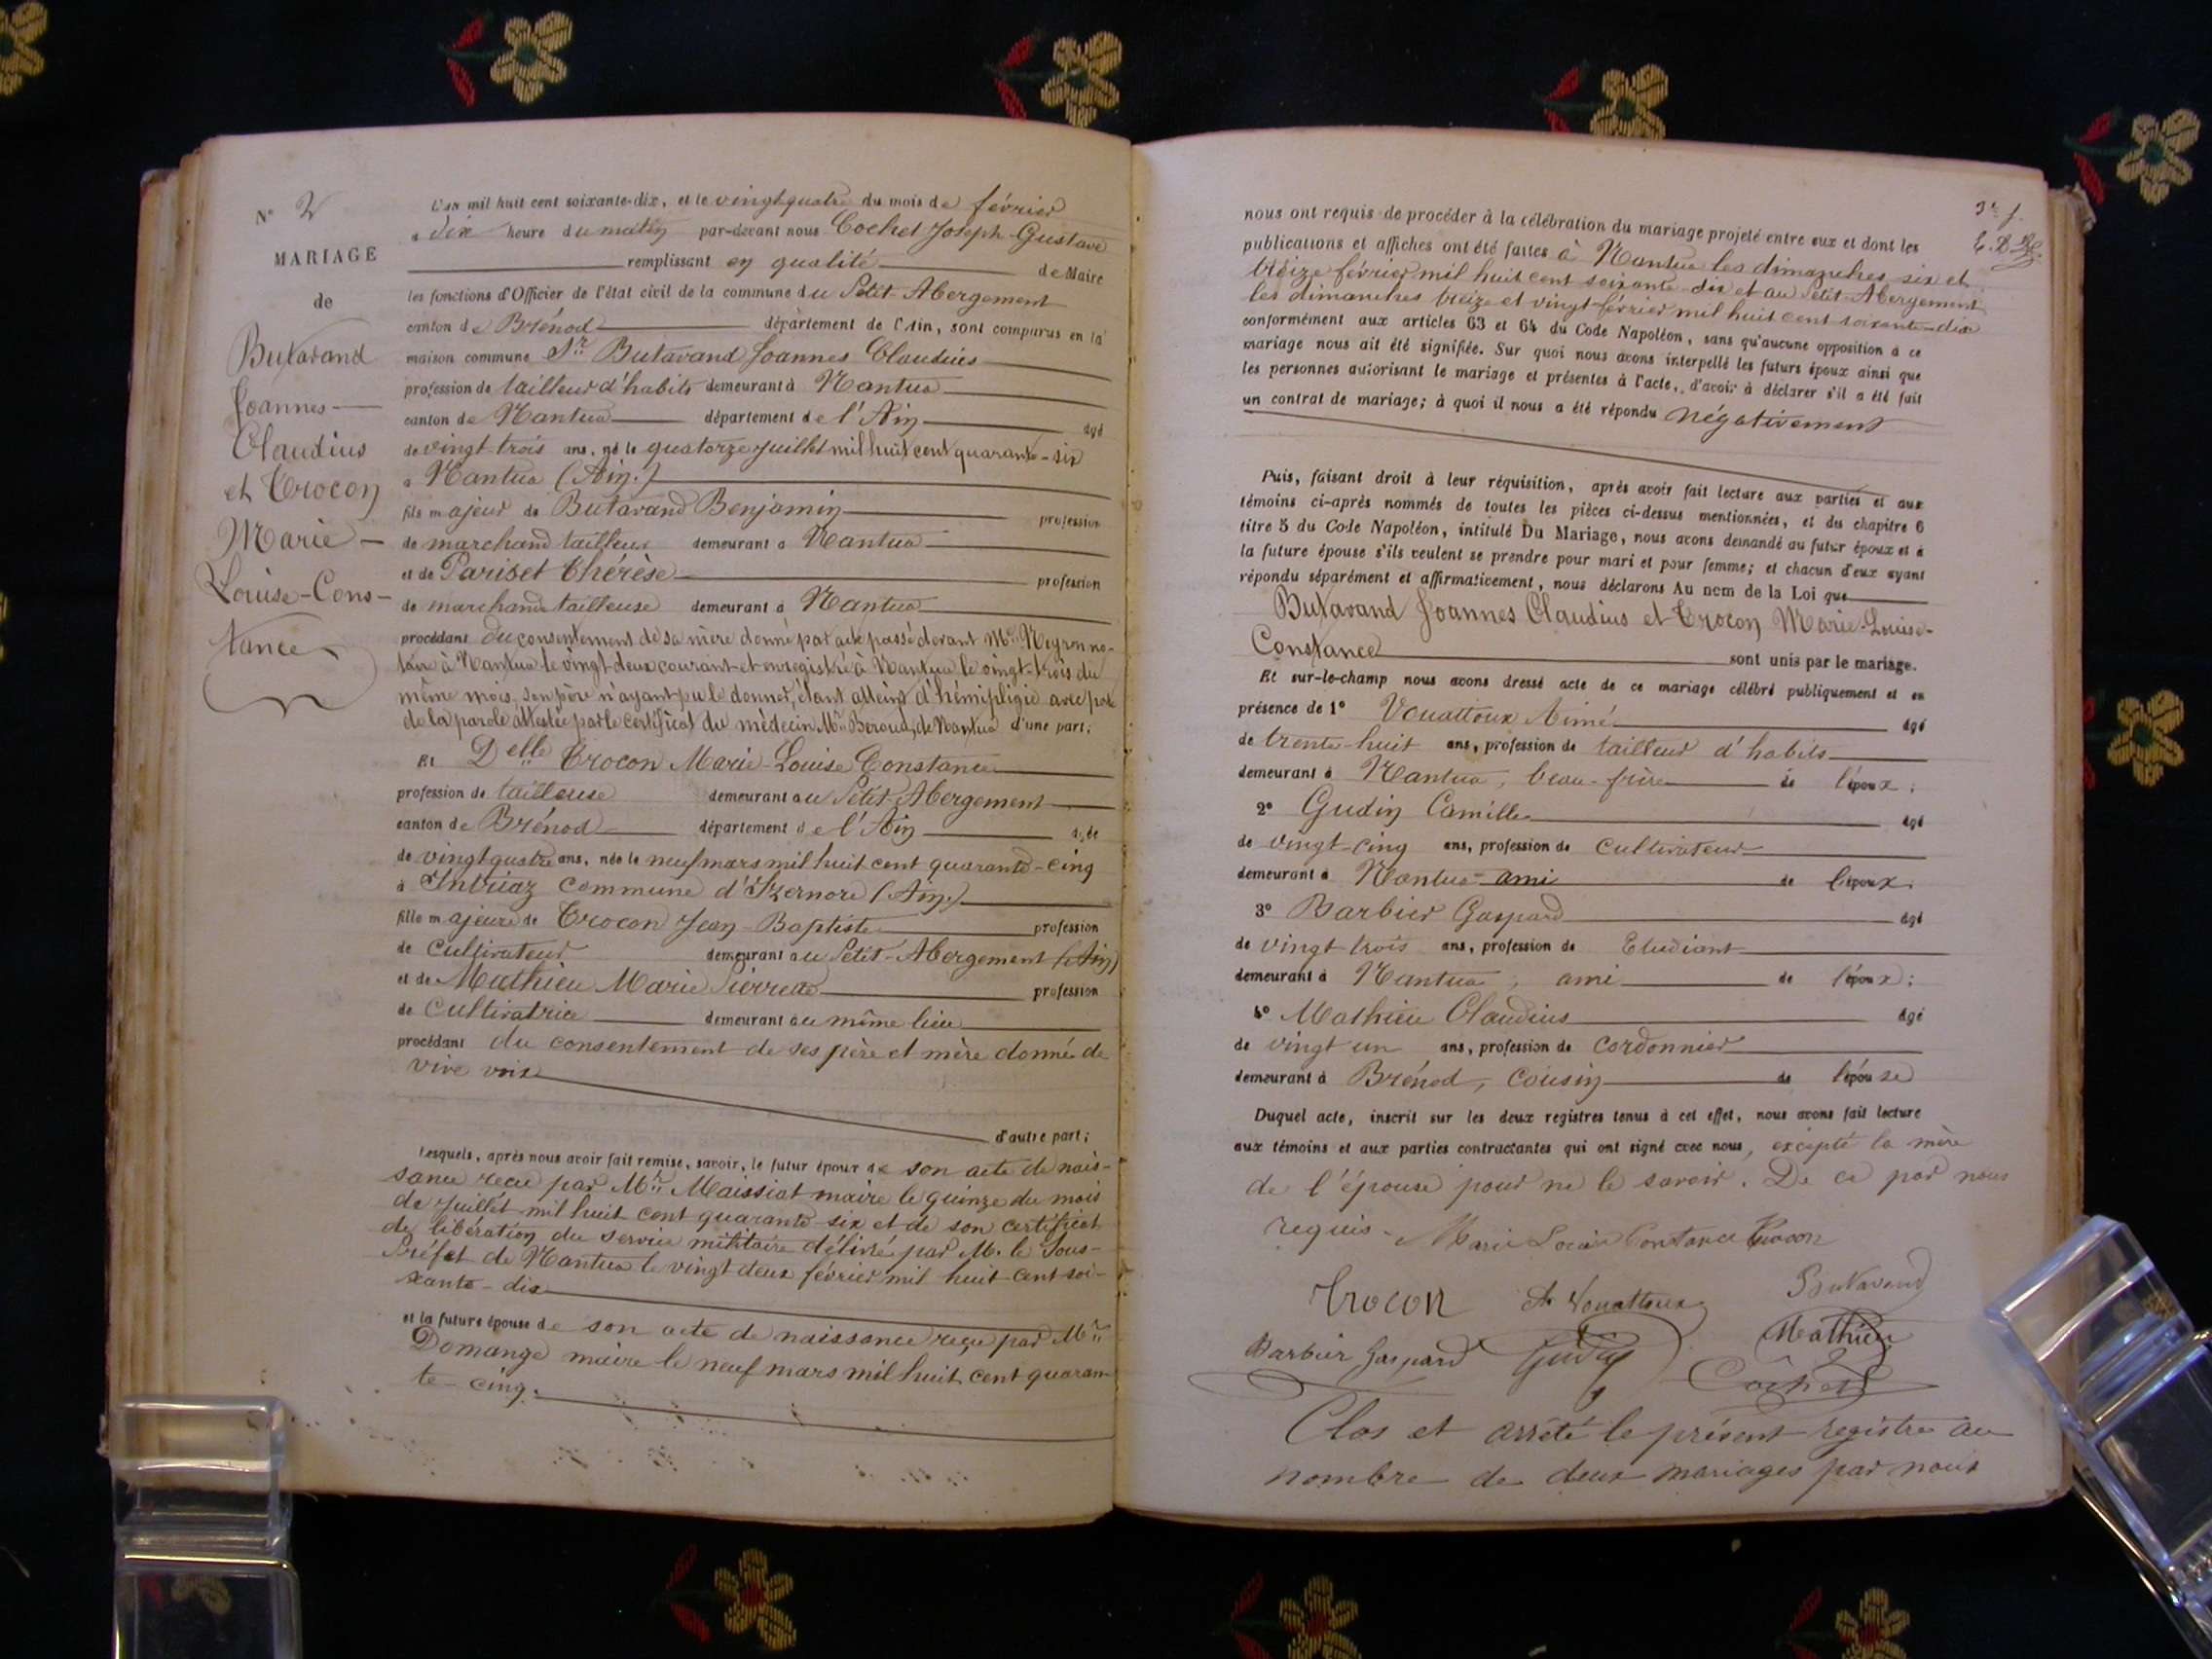 N° 2
MARIAGE
de
Butavand
Joannes
Claudius
et Trocon
Marie-
Louise-Cons-
tance
L'an mil huit cent soixante-dix, et le vingt quatre du mois de février
à dix heure du matin par-devant nous Cochet Joseph Gustave
remplissant en qualité de Maire
les fonctions d'Officier de l'état civil de la commune du Petit-Abergement
canton de Brénod département de l'Ain, sont comparus en la
maison commune Sr Butavand Joannes Claudius
profession de tailleur d'habits demeurant à Nantua
canton de Nantua département de l'Ain âgé
de vingt-trois ans, né le quatorze juillet mil huit cent quarante-six
à Nantua (Ain.)
fils majeur de Butavand Benjamin profession
de marchand tailleur demeurant à Nantua
et de Pariset Thérèse profession
de marchande tailleuse demeurant à Nantua
procédant du consentement de sa mère donné par acte passé devant Me Neyron no-
taire à Nantua le vingt deux courant et enregistré à Nantua le vingt-trois du
même mois, son père n'ayant pu le donner, étant atteint d'hémiplégie avec perte
de la parole attestée par le certificat du médecin Mr de Nantua d'une part;
Et Delle Trocon Marie-Louise Constance
profession de tailleuse demeurant au Petit-Abergement
canton de Brénod département de l'Ain âgée
de vingt quatre ans, née le neuf mars mil huit cent quarante-cinq
à Intriaz commune d'Izernore (Ain.)
fille majeure de Trocon Jean-Baptiste profession
de cultivateur demeurant au Petit-Abergement (Ain)
et de Mathieu Marie Pierrette profession
de cultivatrice demeurant au même lieu
procédant du consentement de ses père et mère donné de
vive voix
d'autre part;
Lesquels, après nous avoir fait remise, savoir, le futur époux de son acte de nais-
sance reçu par Mr Maissiat maire le quinze du mois
de juillet mil huit cent quarante-six et de son certificat
de libération du service militaire délivré par M. le Sous-
Préfet de Nantua le vingt deux février mil huit cent soi-
xante-dix
et la future épouse de son acte de naissance reçu par Mr
Domange maire le neuf mars mil huit cent quaran-
te-cinq.
3e f.
nous ont requis de procéder à la célébration du mariage projeté entre eux et dont les
publications et affiches ont été faites à Nantua les dimanches six et
treize février mil huit cent soixante-dix et au Petit-Abergement
les dimanches treize et vingt février mil huit cent soixante-dix
conformément aux articles 63 et 64 du Code Napoléon, sans qu'aucune opposition à ce
mariage nous ait été signifiée. Sur quoi nous avons interpellé les futurs époux ainsi que
les personnes autorisant le mariage et présentes à l'acte, d'avoir à déclarer s'il a été fait
un contrat de mariage; à quoi il nous a été répondu négativement
Puis, faisant droit à leur réquisition, après avoir fait lecture aux parties et aux
témoins ci-après nommés de toutes les pièces ci-dessus mentionnées, et du chapitre 6
titre 5 du Code Napoléon, intitulé Du Mariage, nous avons demandé au futur époux et à
la future épouse s'ils veulent se prendre pour mari et pour femme; et chacun d'eux ayant
répondu séparément et affirmativement, nous déclarons Au nom de la Loi que
Butavand Joannes Claudius et Trocon Marie-Louise-
Constance sont unis par le mariage.
Et sur-le-champ nous avons dressé acte de ce mariage célébré publiquement et en
présence de 1° Vouattoux Aimé âgé
de trente-huit ans, profession de tailleur d'habits
demeurant à Nantua, beau-frère de l'époux;
2° Gudin Camille âgé
de vingt-cinq ans, profession de cultivateur
demeurant à Nantua-ami de l'époux.
3° Barbier Gaspard âgé
de vingt trois ans, profession de Etudiant
demeurant à Nantua, ami de l'époux;
4° Mathieu Claudius âgé
de vingt un ans, profession de cordonnier
demeurant à Brénod, cousin de l'épouse
Duquel acte, inscrit sur les deux registres tenus à cet effet, nous avons fait lecture
aux témoins et aux parties contractantes qui ont signé avec nous, excepté la mère
de l'épouse pour ne le savoir. De ce par nous
requis. Marie Louise Constance Trocon
Trocon A Vouattoux Butavand
Barbier Gaspard Gudin Mathieu
Cochet
Clos et arrêté le présent registre au
nombre de deux mariages par nous